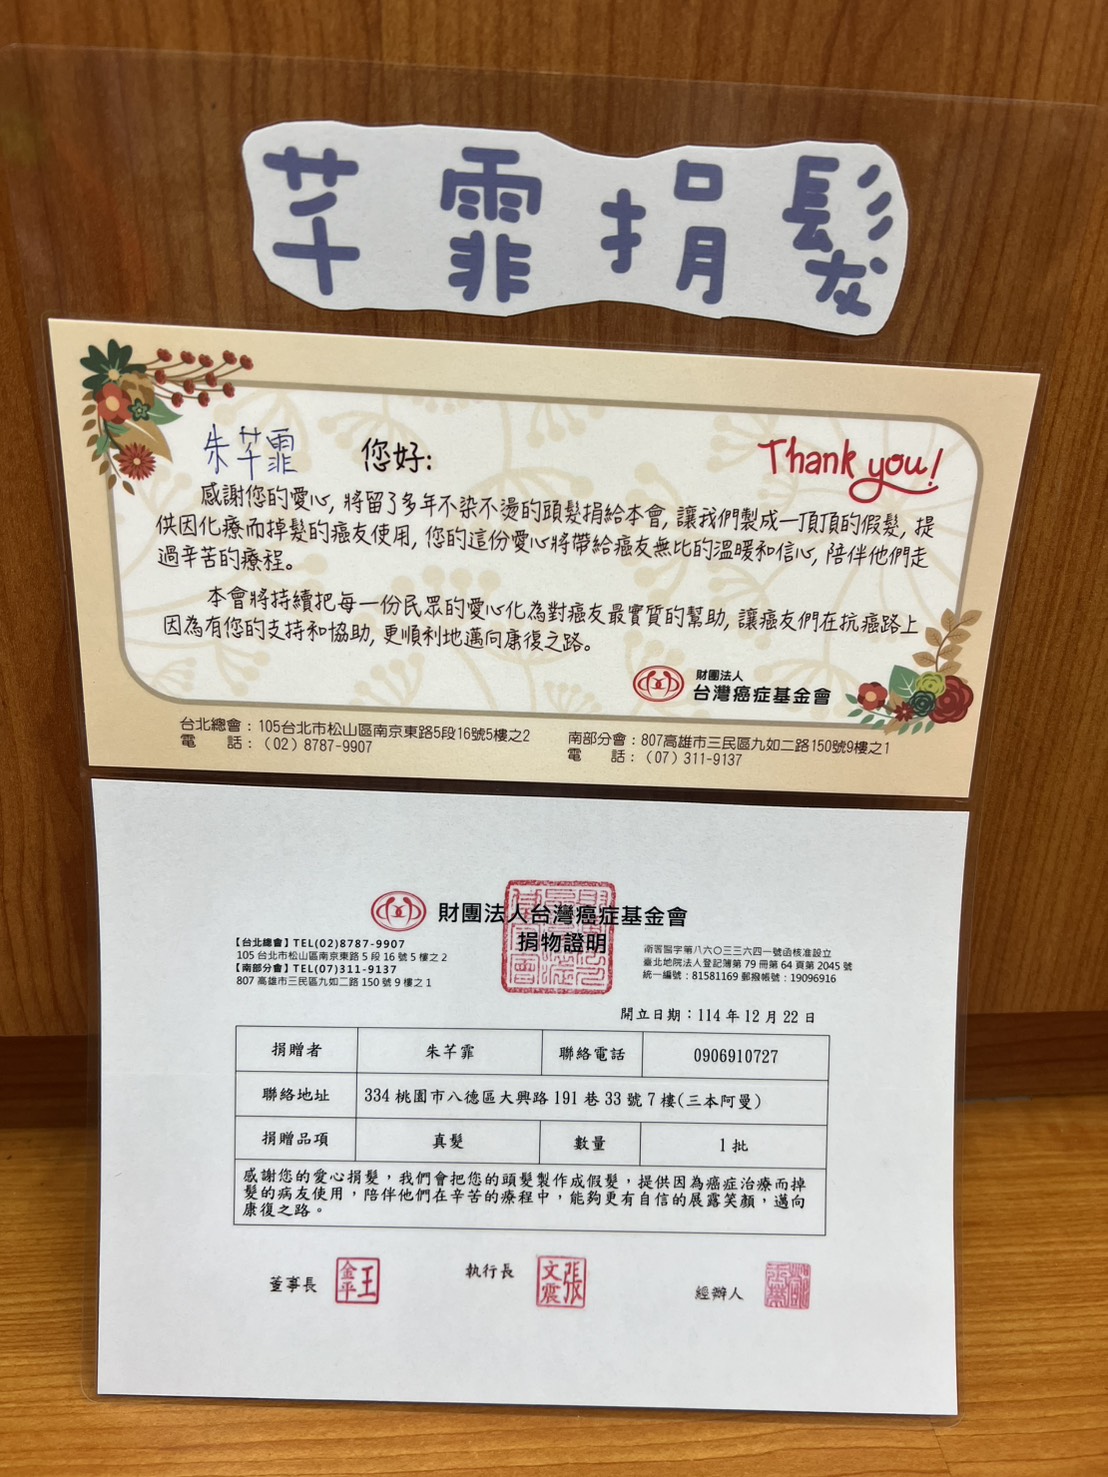 芊霏捐髮
朱芊霏 您好:
Thank you!
感謝您的愛心, 將留了多年不染不燙的頭髮捐給本會, 讓我們製成一頂頂的假髮, 提
供因化療而掉髮的癌友使用, 您的這份愛心將帶給癌友無比的溫暖和信心, 陪伴他們走
過辛苦的療程。
本會將持續把每一份民眾的愛心化為對癌友最實質的幫助, 讓癌友們在抗癌路上
因為有您的支持和協助, 更順利地邁向康復之路。
財團法人
台灣癌症基金會
台北總會：105台北市松山區南京東路5段16號5樓之2
電　　話：（02）8787-9907
南部分會：807高雄市三民區九如二路150號9樓之1
電　　話：（07）311-9137
財團法人台灣癌症基金會
捐物證明
【台北總會】TEL(02)8787-9907
105 台北市松山區南京東路 5 段 16 號 5 樓之 2
【南部分會】TEL(07)311-9137
807 高雄市三民區九如二路 150 號 9 樓之 1
衛署醫字第八六〇三三六四一號函核准設立
臺北地院法人登記簿第 79 冊第 64 頁第 2045 號
統一編號：81581169 郵撥帳號：19096916
開立日期：114 年 12 月 22 日
捐贈者 朱芊霏 聯絡電話 0906910727
聯絡地址 334 桃園市八德區大興路 191 巷 33 號 7 樓(三本阿曼)
捐贈品項 真髮 數量 1 批
感謝您的愛心捐髮，我們會把您的頭髮製作成假髮，提供因為癌症治療而掉
髮的病友使用，陪伴他們在辛苦的療程中，能夠更有自信的展露笑顏，邁向
康復之路。
董事長 王金平
執行長 張文震
經辦人